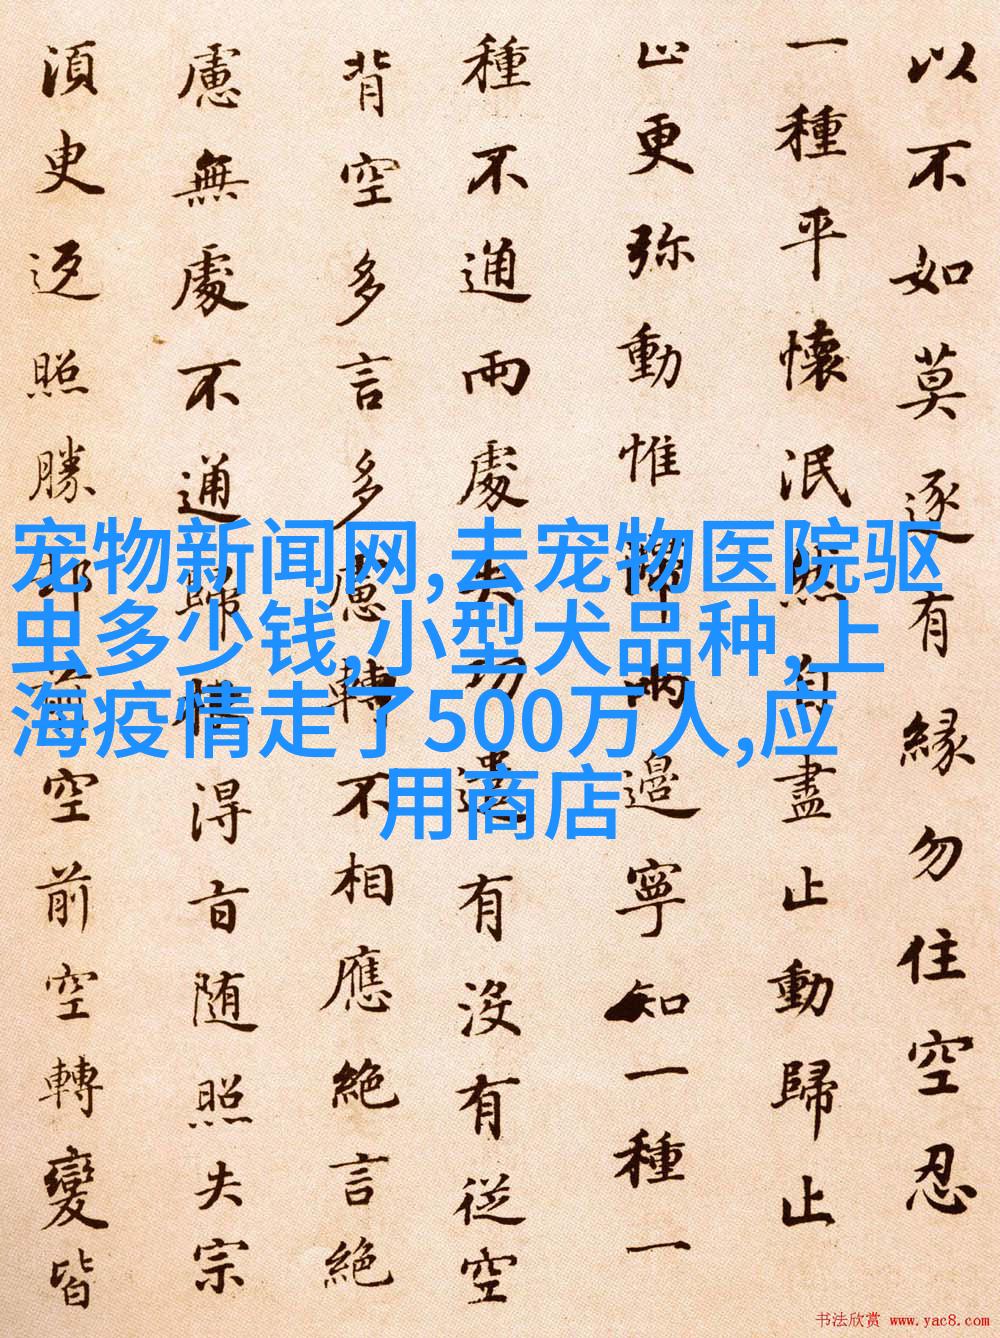 以不如莫逐有緣勿住空忍
一種平懷泯然自盡止動歸止
止更弥動惟滯兩邊寧知一種一
種不通兩處失功遣有沒有従空
背空多言多慮轉不相應絶言絶
慮無處不通歸根得旨随照失宗
須臾返照勝却前空前空轉變皆
宠物新闻网,去宠物医院驱
虫多少钱,小型犬品种,上
海疫情走了500万人,应
用商店
书法欣赏 www.yac8.com